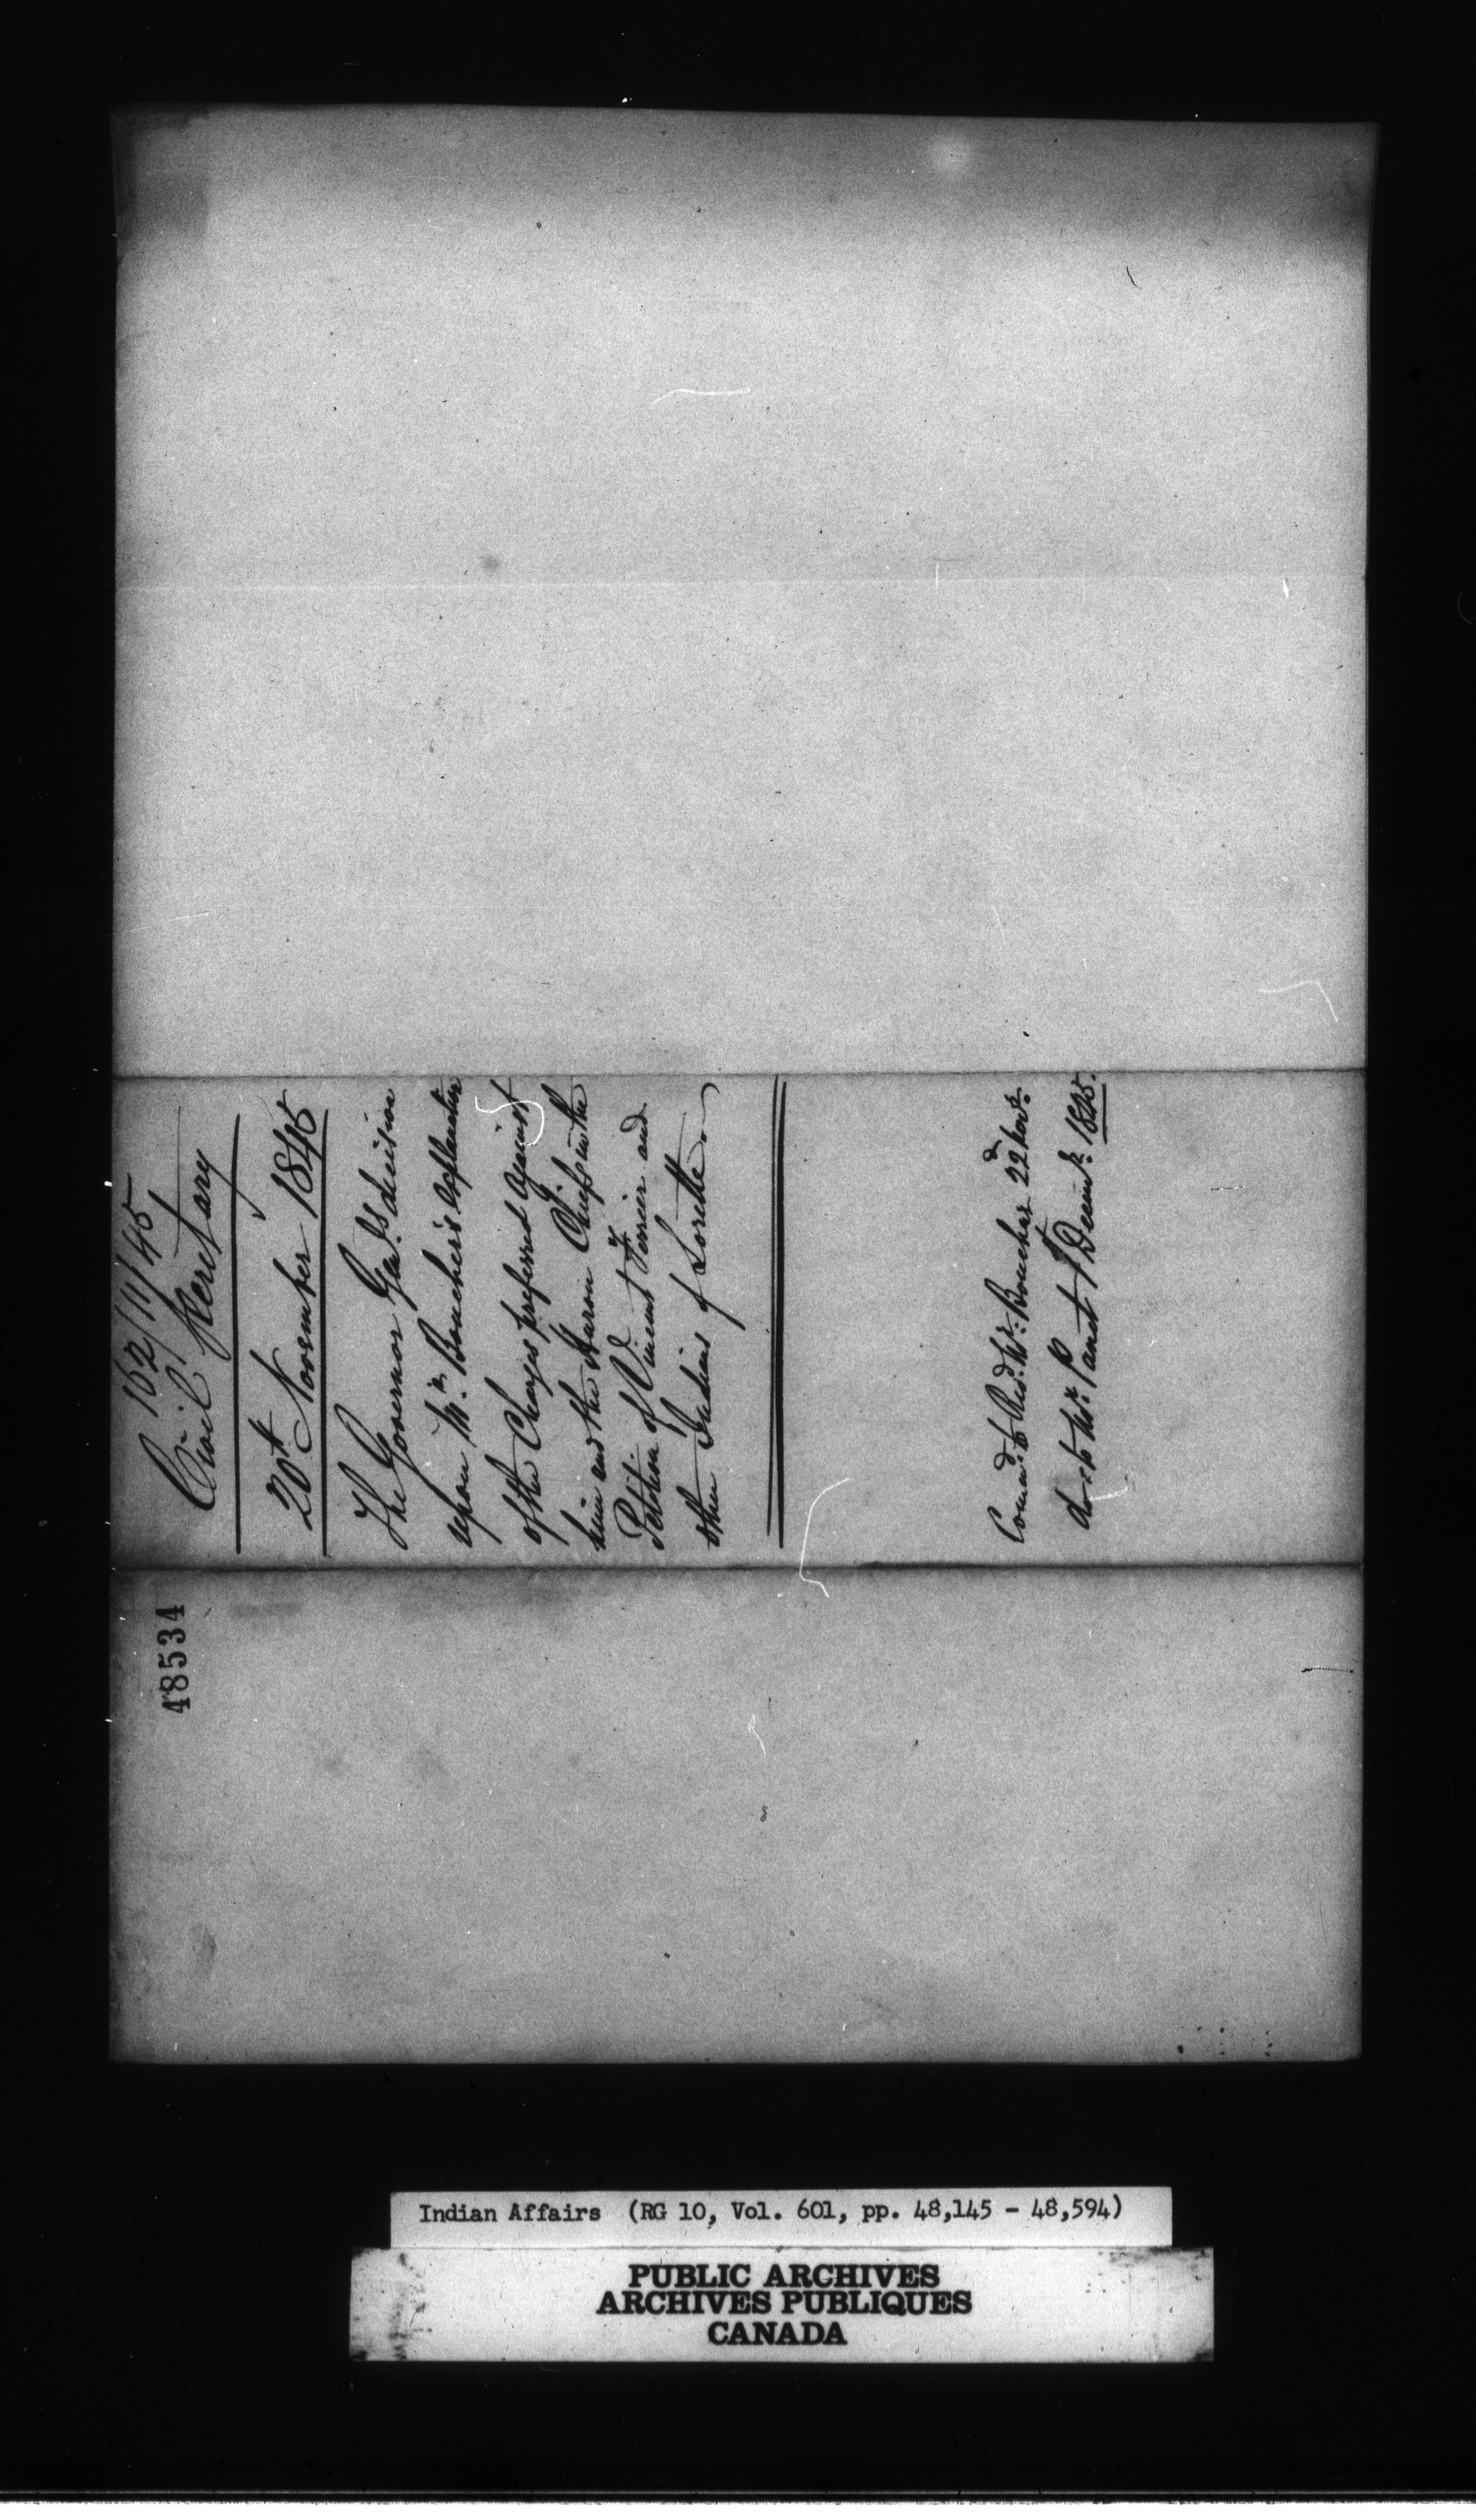 162/11/45
Civil Secretary
20th November 1845
The Governor Genl's decision
upon Mr. Boucher's explanation
of the Charges preferred against
him and the Huron Chiefs in the
Petition of Vincent Ferrier and
other Indians of Lorette.
Comd. to Revd. Mr. Boucher 22d Novr.
do to Mr. Panet 1st Decemr. 1845.
48534
Indian Affairs (RG 10, Vol. 601, pp. 48,145 - 48,594)
PUBLIC ARCHIVES
ARCHIVES PUBLIQUES
CANADA